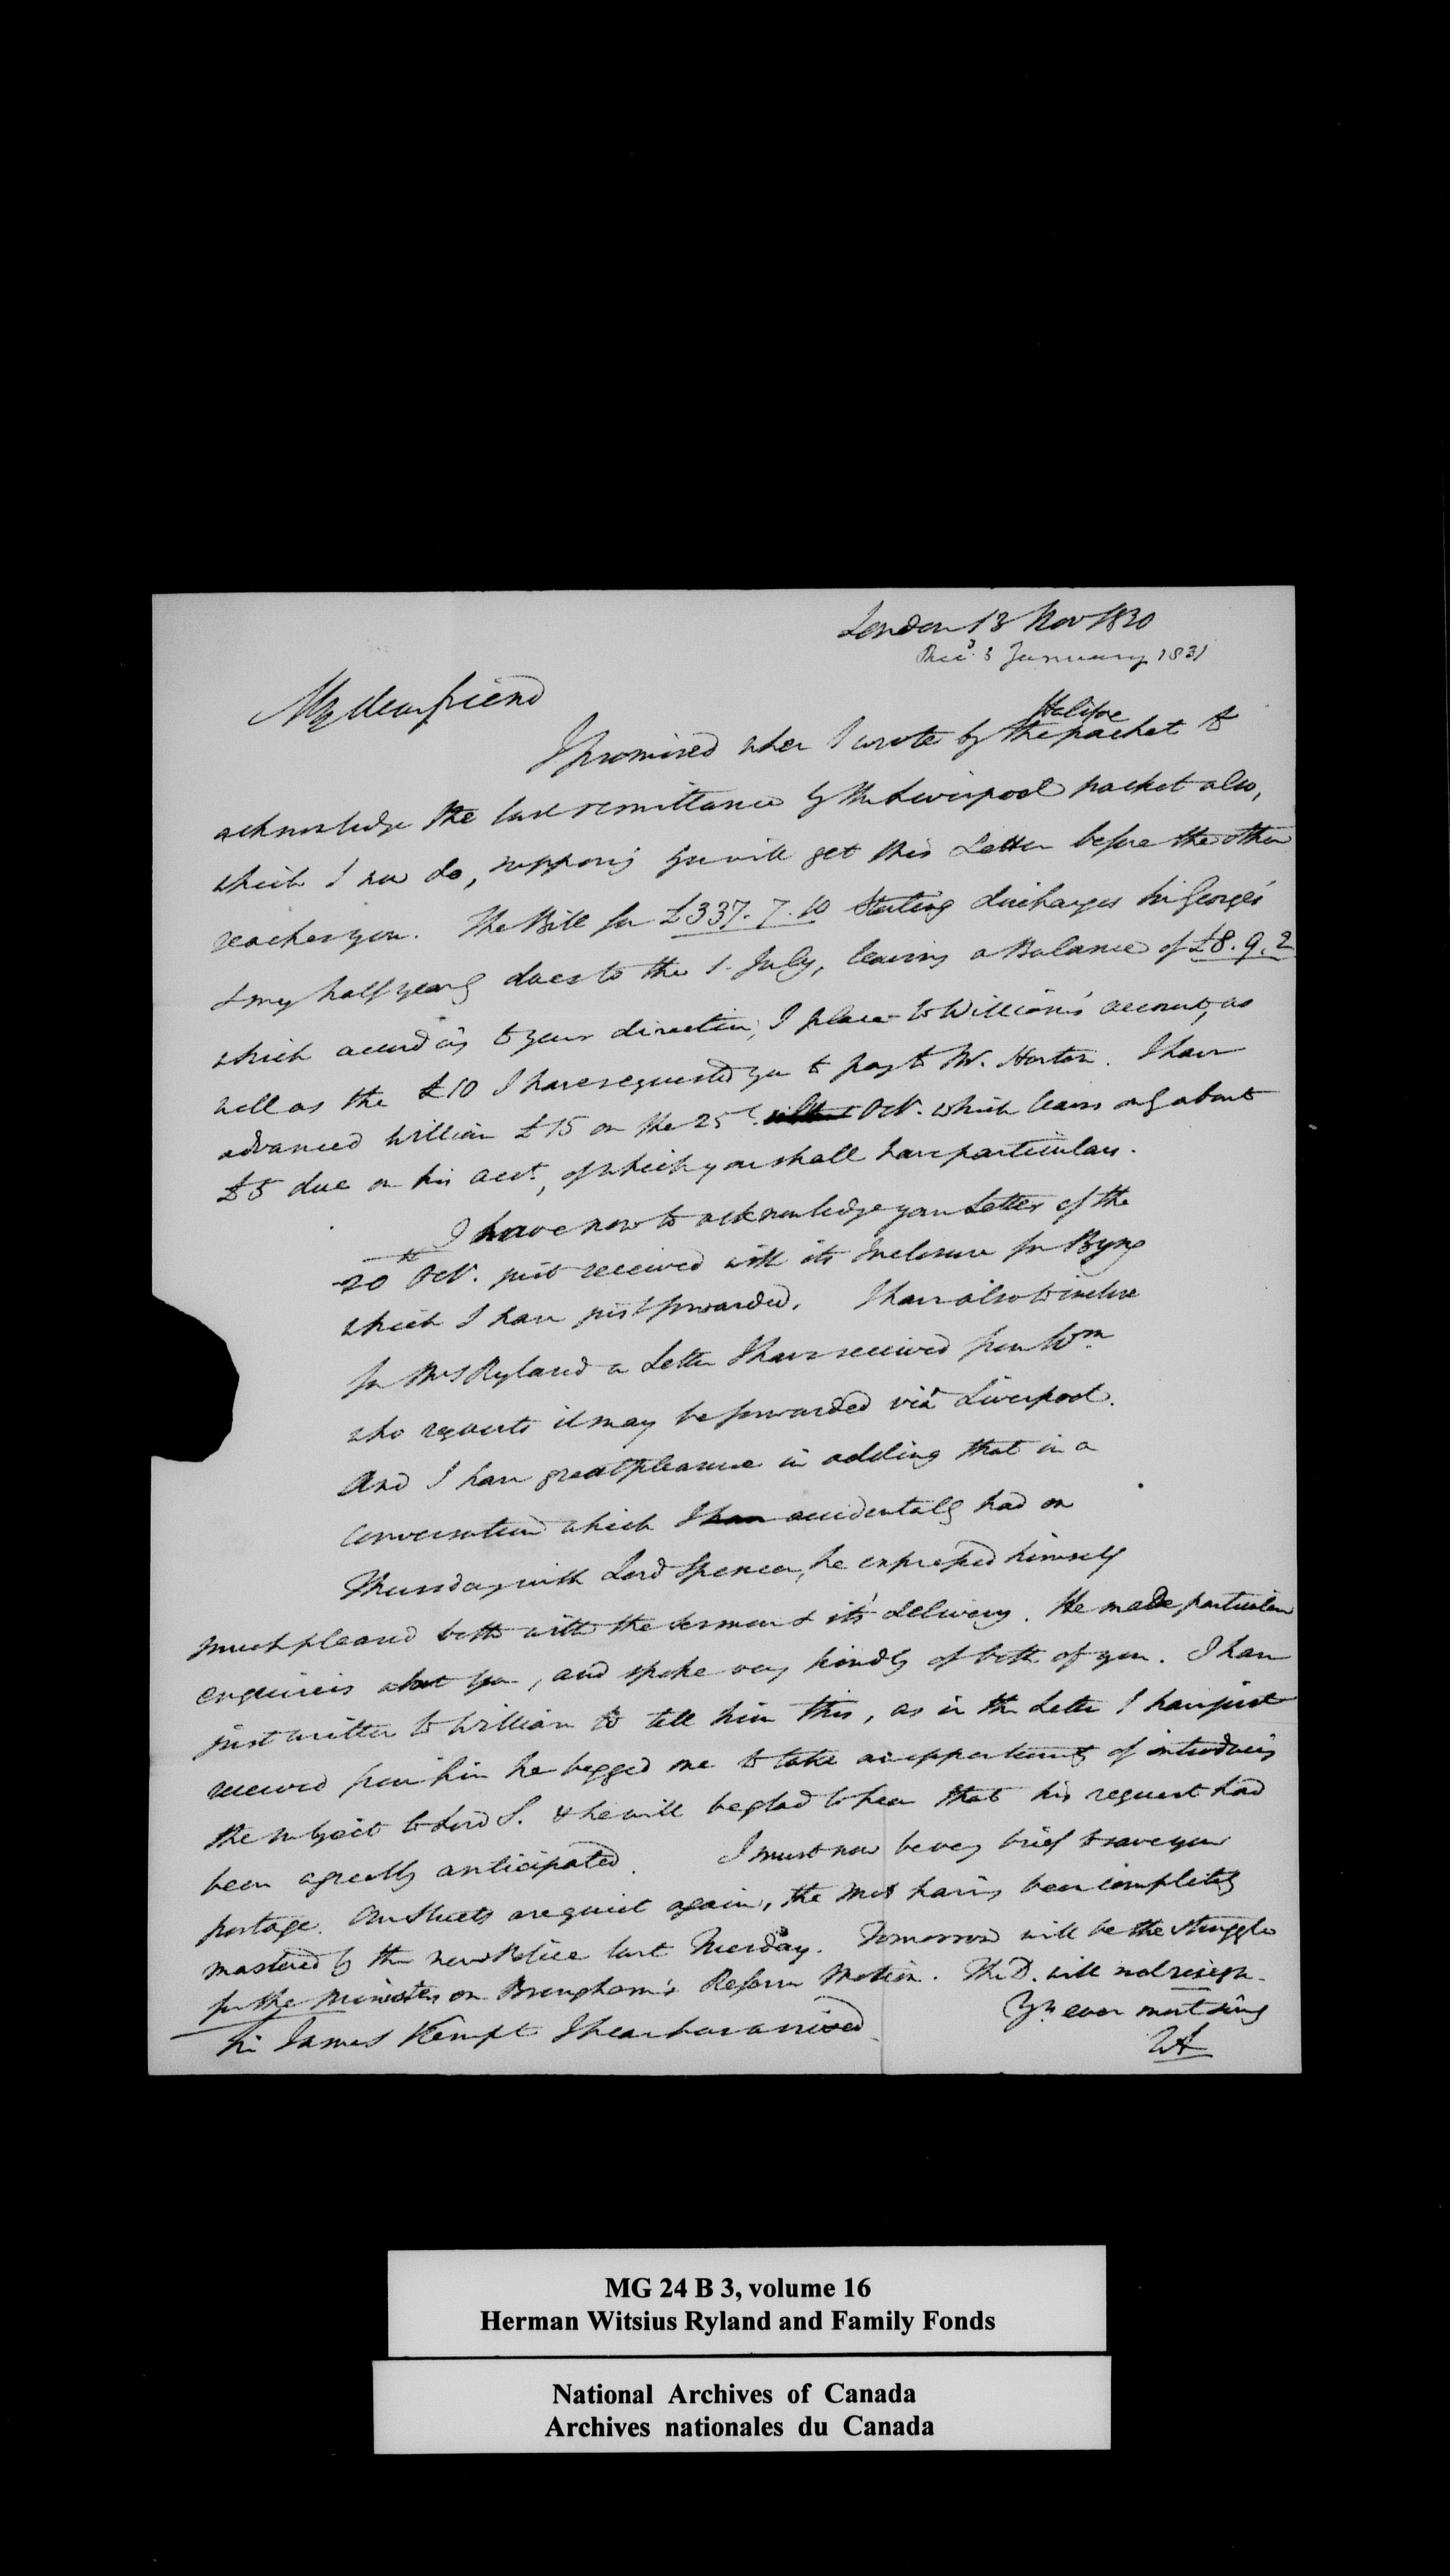 London 13 Nov 1830
Rec.d 3 January 1831
My dear friend
Halifax
I promised when I wrote by the packet to
acknowledge the last remittance by the Liverpool packet also,
which I now do, supposing you will get this Letter before the other
reaches you. The Bill for £337. 7. 10 Sterling discharges Sir George's
& my half years dues to the 1. July, leaving a Balance of £8. 9. 2
which according to your direction, I place to William's account, as
well as the £10 I have requested you to pay to Mr. Horton. I have
advanced William £15 on the 25th Oct. which leaves only about
£5 due on his acct., of which you shall have particulars.
I have now to acknowledge your Letter of the
20th Oct. just received with its Inclosure for Byng
which I have just forwarded. I have also to inclose
for Mrs Ryland a Letter I have received from Wm
who requests it may be forwarded viâ Liverpool.
And I have great pleasure in adding that in a
conversation which I have accidentally had on
Thursday with Lord Spencer, he expressed himself
much pleased both with the sermon & it's delivery. He made particular
enquiries about you, and spoke very kindly of both of you. I have
just written to William to tell him this, as in the Letter I have just
received from him he begged me to take an opportunity of introducing
the subject to Lord S. & he will be glad to hear that his request had
been agreeably anticipated. I must now be very brief to save you
postage. Our Streets are quiet again, the Mob having been completely
mastered by the new Police last Tuesday. Tomorrow will be the struggle
for the Ministers on Brougham's Reform Motion. The D. will not resign.
Sir James Kempt I hear has arrived
Yrs ever most sincy
WA
MG 24 B 3, volume 16
Herman Witsius Ryland and Family Fonds
National Archives of Canada
Archives nationales du Canada